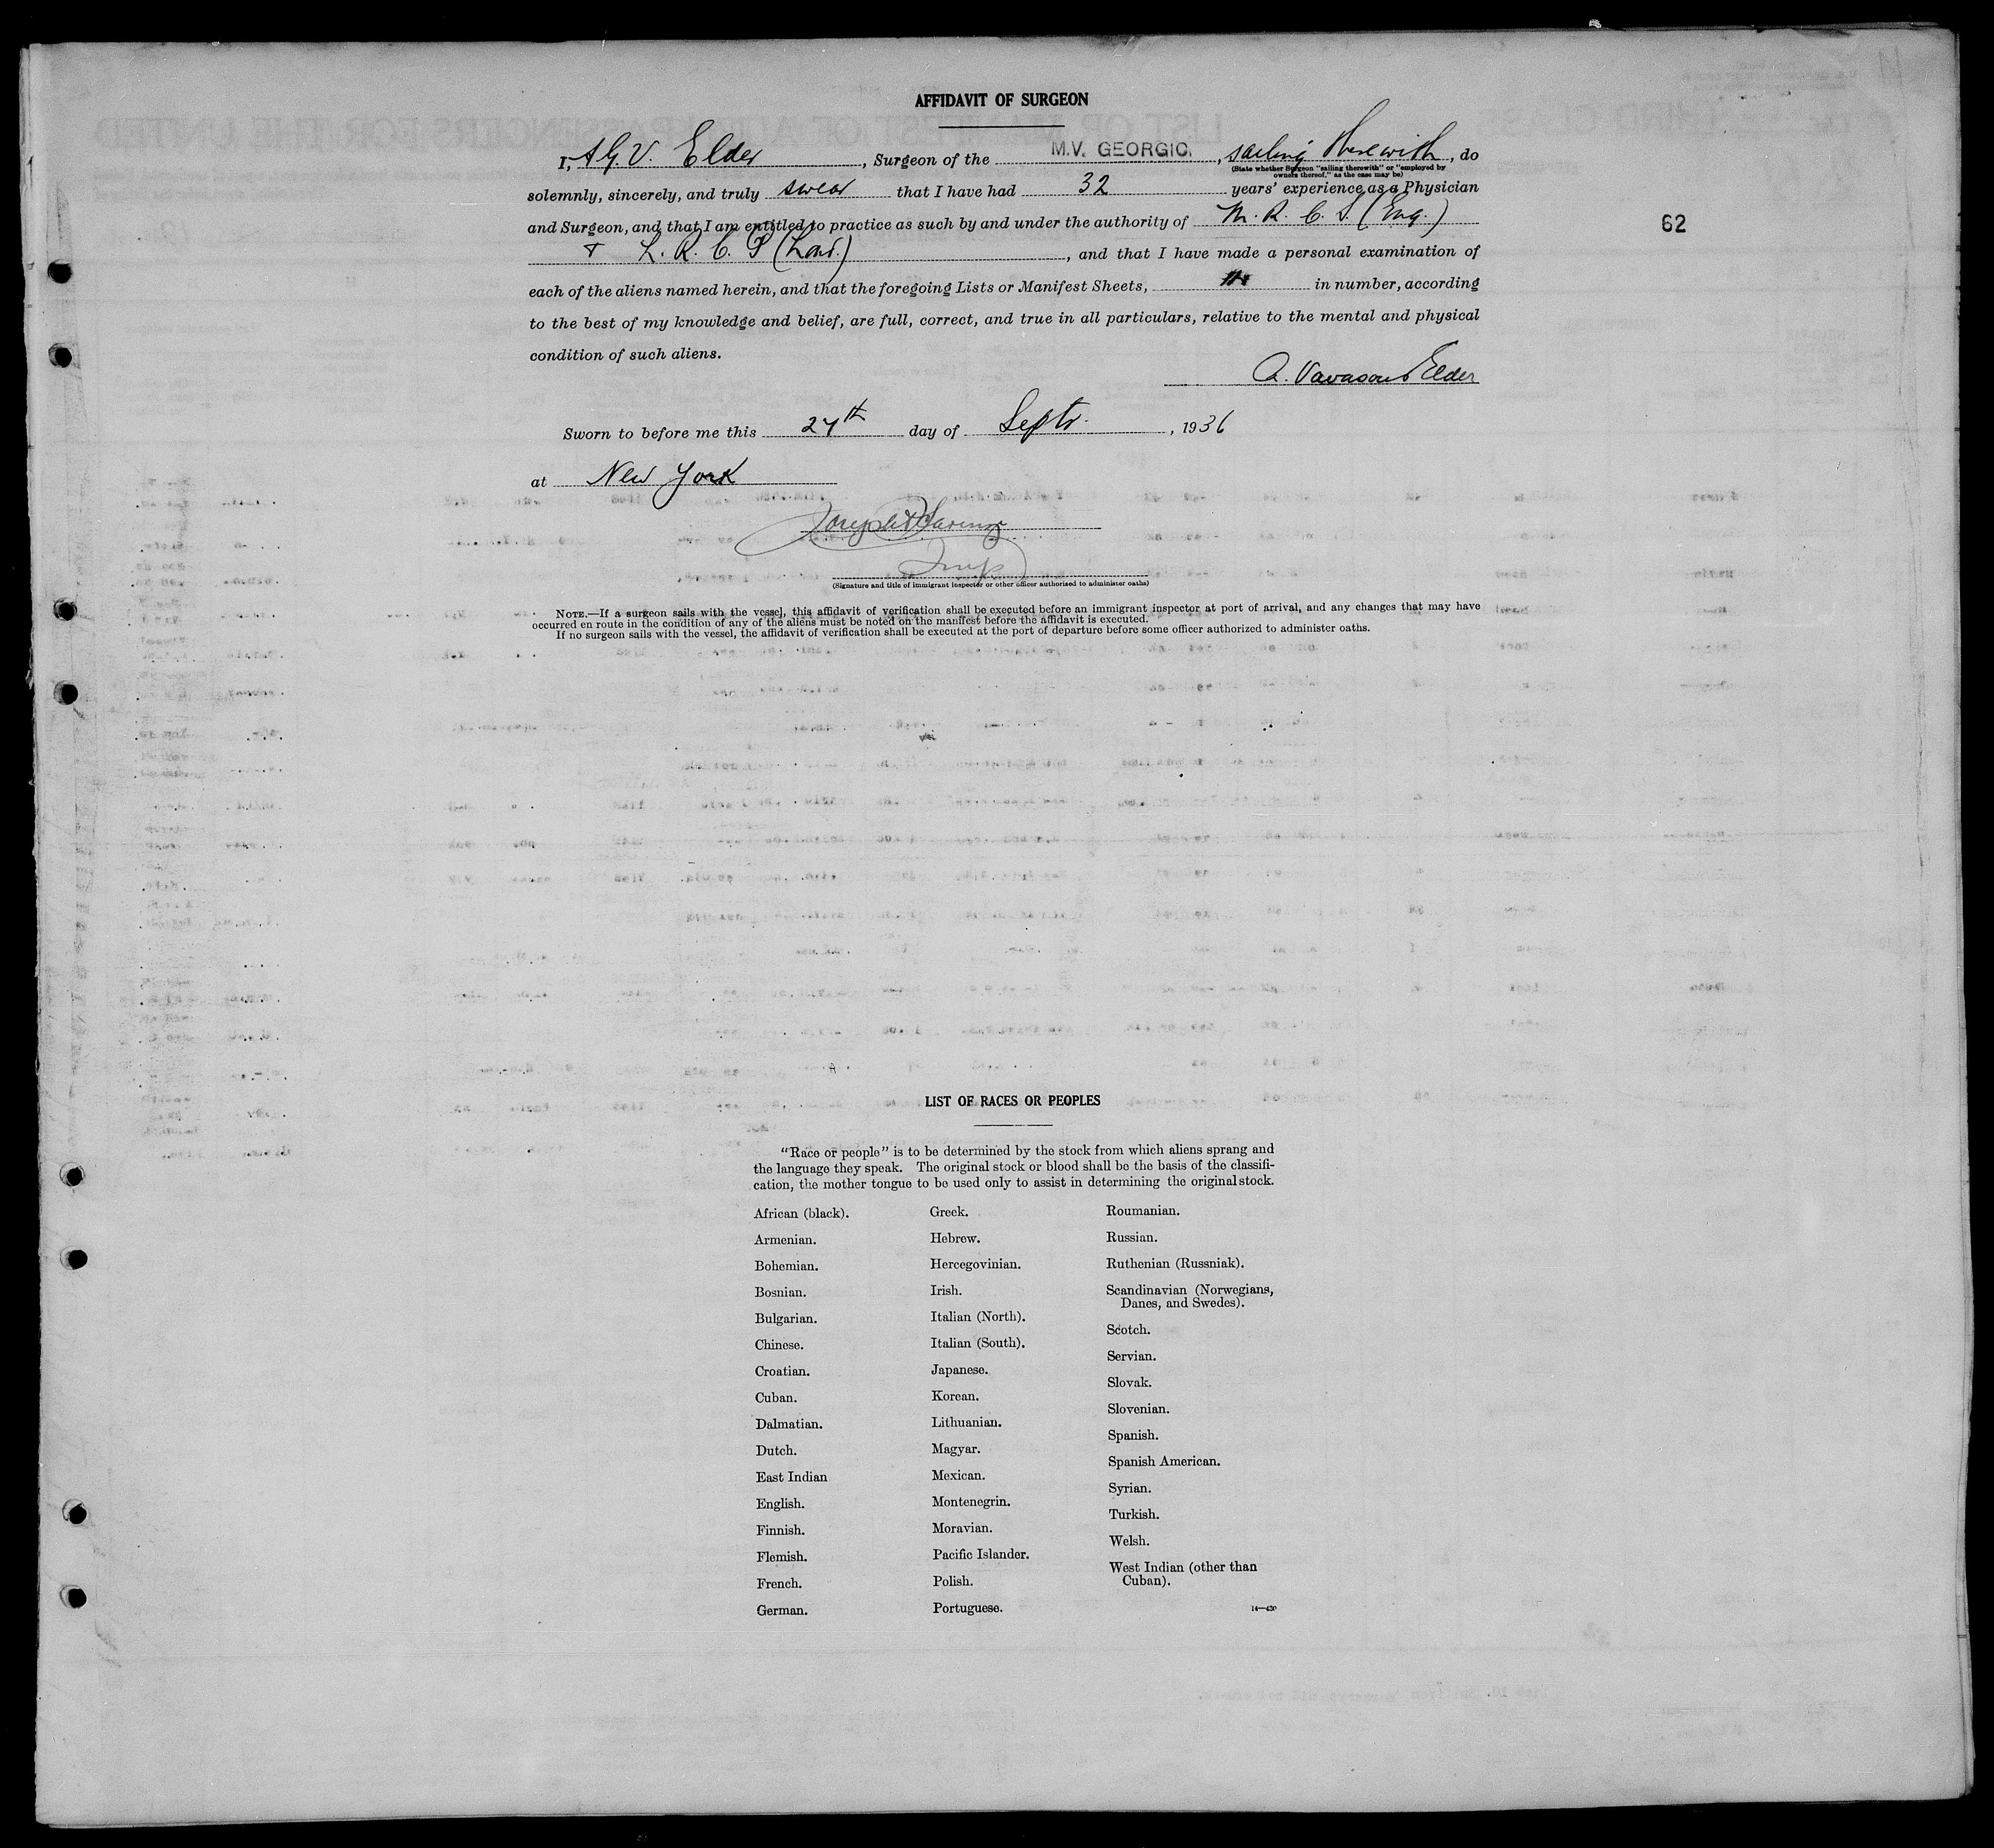 AFFIDAVIT OF SURGEON
I, A.G.V. Elder, Surgeon of the M.V. GEORGIC, sailing therewith, do
(State whether Surgeon "sailing therewith" or "employed by
owners thereof," as the case may be)
solemnly, sincerely, and truly swear that I have had 32 years' experience as a Physician
and Surgeon, and that I am entitled to practice as such by and under the authority of M. R. C. S. (Eng.)
62
+ L. R. C. P (Lond.), and that I have made a personal examination of
each of the aliens named herein, and that the foregoing Lists or Manifest Sheets, in number, according
to the best of my knowledge and belief, are full, correct, and true in all particulars, relative to the mental and physical
condition of such aliens.
A. Vavasour Elder
Sworn to before me this 27th day of Septr., 1936
at New York
Insp
(Signature and title of immigrant inspector or other officer authorized to administer oaths)
NOTE.—If a surgeon sails with the vessel, this affidavit of verification shall be executed before an immigrant inspector at port of arrival, and any changes that may have
occurred en route in the condition of any of the aliens must be noted on the manifest before the affidavit is executed.
If no surgeon sails with the vessel, the affidavit of verification shall be executed at the port of departure before some officer authorized to administer oaths.
LIST OF RACES OR PEOPLES
"Race or people" is to be determined by the stock from which aliens sprang and
the language they speak. The original stock or blood shall be the basis of the classifi-
cation, the mother tongue to be used only to assist in determining the original stock.
African (black).
Armenian.
Bohemian.
Bosnian.
Bulgarian.
Chinese.
Croatian.
Cuban.
Dalmatian.
Dutch.
East Indian
English.
Finnish.
Flemish.
French.
German.
Greek.
Hebrew.
Hercegovinian.
Irish.
Italian (North).
Italian (South).
Japanese.
Korean.
Lithuanian.
Magyar.
Mexican.
Montenegrin.
Moravian.
Pacific Islander.
Polish.
Portuguese.
Roumanian.
Russian.
Ruthenian (Russniak).
Scandinavian (Norwegians,
Danes, and Swedes).
Scotch.
Servian.
Slovak.
Slovenian.
Spanish.
Spanish American.
Syrian.
Turkish.
Welsh.
West Indian (other than
Cuban).
14—430